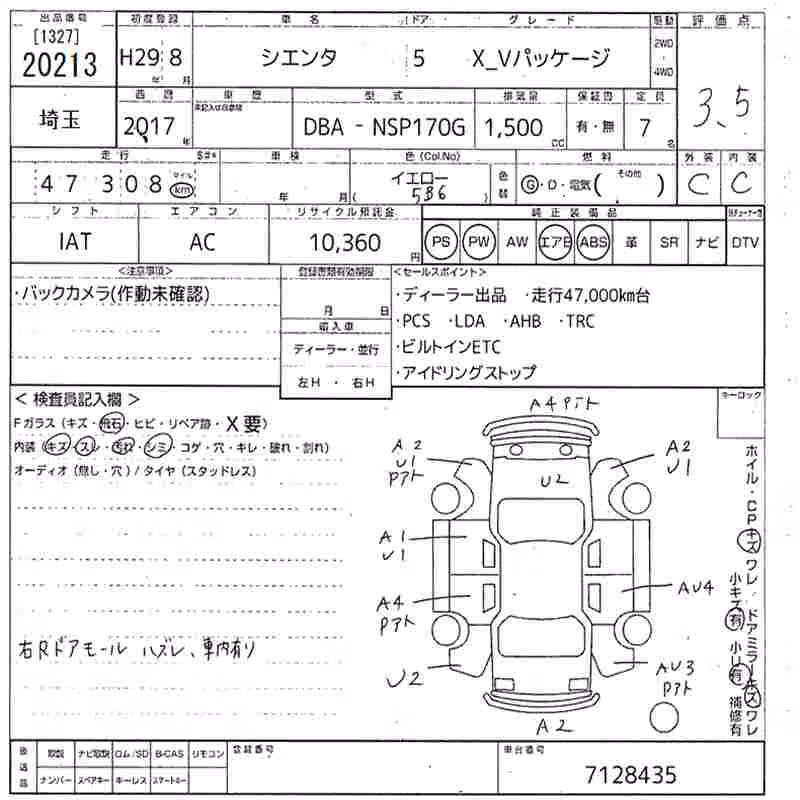 出品番号 初度登録 車名 ドア グレード 駆動 評価点
[1327] 20213 H29 8 年 月 シエンタ 5 X_Vパッケージ 2WD ・ 4WD 3.5
西暦 車歴 型式 排気量 保証書 定員
埼玉 2017 年 DBA - NSP170G 1,500 cc 有・無 7 名
走行 S#* 車検 色(Col.No) 燃料 外装 内装
47308 マイル km 年 月 イエロー (5B6) 色替 G・D・電気( その他 ) C C
シフト エアコン リサイクル預託金 純正装備品
IAT AC 10,360 円 PS PW AW エアB ABS 革 SR ナビ DTV
<注意事項> 登録書類有効期限 <セールスポイント>
・バックカメラ(作動未確認) 月 日 ・ディーラー出品 ・走行47,000km台
輸入車 ・PCS ・LDA ・AHB ・TRC
ディーラー・並行 ・ビルトインETC
左H ・ 右H ・アイドリングストップ
< 検査員記入欄 > キーロック
Fガラス(キズ・飛石・ヒビ・リペア跡・X要)
内装(キズ・スレ・汚れ・シミ・コゲ・穴・キレ・破れ・割れ)
オーディオ(無し・穴)/タイヤ(スタッドレス)
A4 Pアト
A2 U1 Pアト
U2
A2 U1
A1 U1
A4 Pアト
AU4
U2
AU3 Pアト
A2
ホイル・CPキズワレ/ドアミラーキズワレ
小キズ有 小U有 補修有
右Rドアモール ハズレ、車内有り
後送品 取説 ナビ取説 ロム/SD B-CAS リモコン 登録番号 車台番号
ナンバー スペアキー キーレス スマートキー 7128435